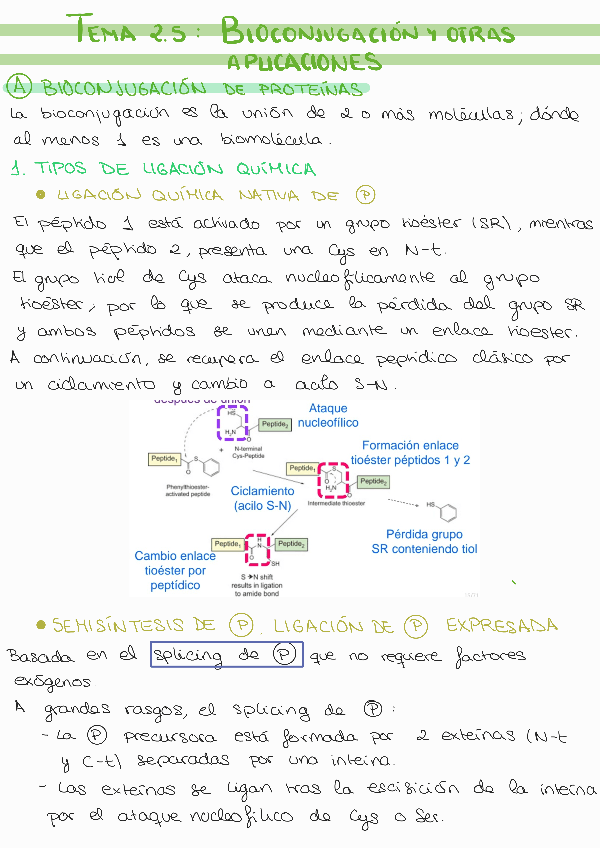 TEMA 2.5: BIOCONJUGACIÓN Y OTRAS
APLICACIONES
A BIOCONJUGACIÓN DE PROTEÍNAS
La bioconjugación es la unión de 2 o más moléculas, dónde
al menos 1 es una biomolécula.
1. TIPOS DE LIGACIÓN QUÍMICA
• LIGACIÓN QUÍMICA NATIVA DE P
El péptido 1 está activado por un grupo tioéster (SR), mientras
que el péptido 2, presenta una Cys en N-t.
El grupo tiol de Cys ataca nucleofílicamente al grupo
tioéster, por lo que se produce la pérdida del grupo SR
y ambos péptidos se unen mediante un enlace tioester.
A continuación, se recupera el enlace peptídico clásico por
un ciclamiento y cambio a acilo S-N.
después de unión
Ataque
nucleofílico
HS
H2N
O
Peptide2
+
N-terminal
Cys-Peptide
Peptide1
S
O
Phenylthioester-
activated peptide
Formación enlace
tioéster péptidos 1 y 2
Peptide1
S
O
H2N
O
Peptide2
Intermediate thioester
Ciclamiento
(acilo S-N)
HS
Pérdida grupo
SR conteniendo tiol
Cambio enlace
tioéster por
peptídico
Peptide1
H
N
O
Peptide2
SH
S→N shift
results in ligation
to amide bond
• SEMISÍNTESIS DE P. LIGACIÓN DE P EXPRESADA
Basada en el splicing de P que no requiere factores
exógenos
A grandes rasgos, el splicing de P:
- La P precursora está formada por 2 exteínas (N-t
y C-t) separadas por una inteína.
- Las exteínas se ligan tras la escisición de la inteína
por el ataque nucleofílico de Cys o Ser.